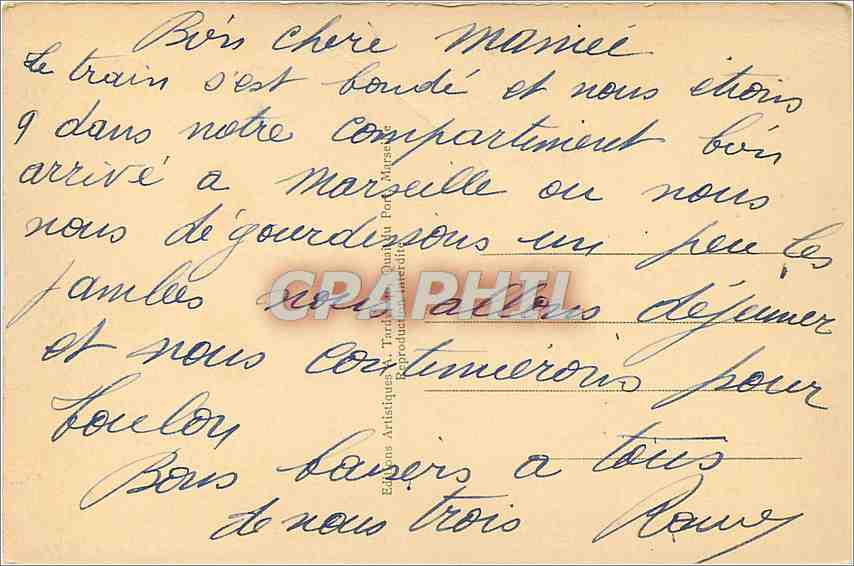 Bon chère Mamée
Le train s'est bondé et nous étions
9 dans notre compartiment bon
arrivé a Marseille ou nous
nous dégourdissons un peu les
jambes nous allons déjeuner
et nous continuerons pour
Toulon
Bons baisers a tous
de nous trois
Editions Artistiques A. Tardy, Quai du Port, Marseille
Reproduction Interdite
CPAPHIL